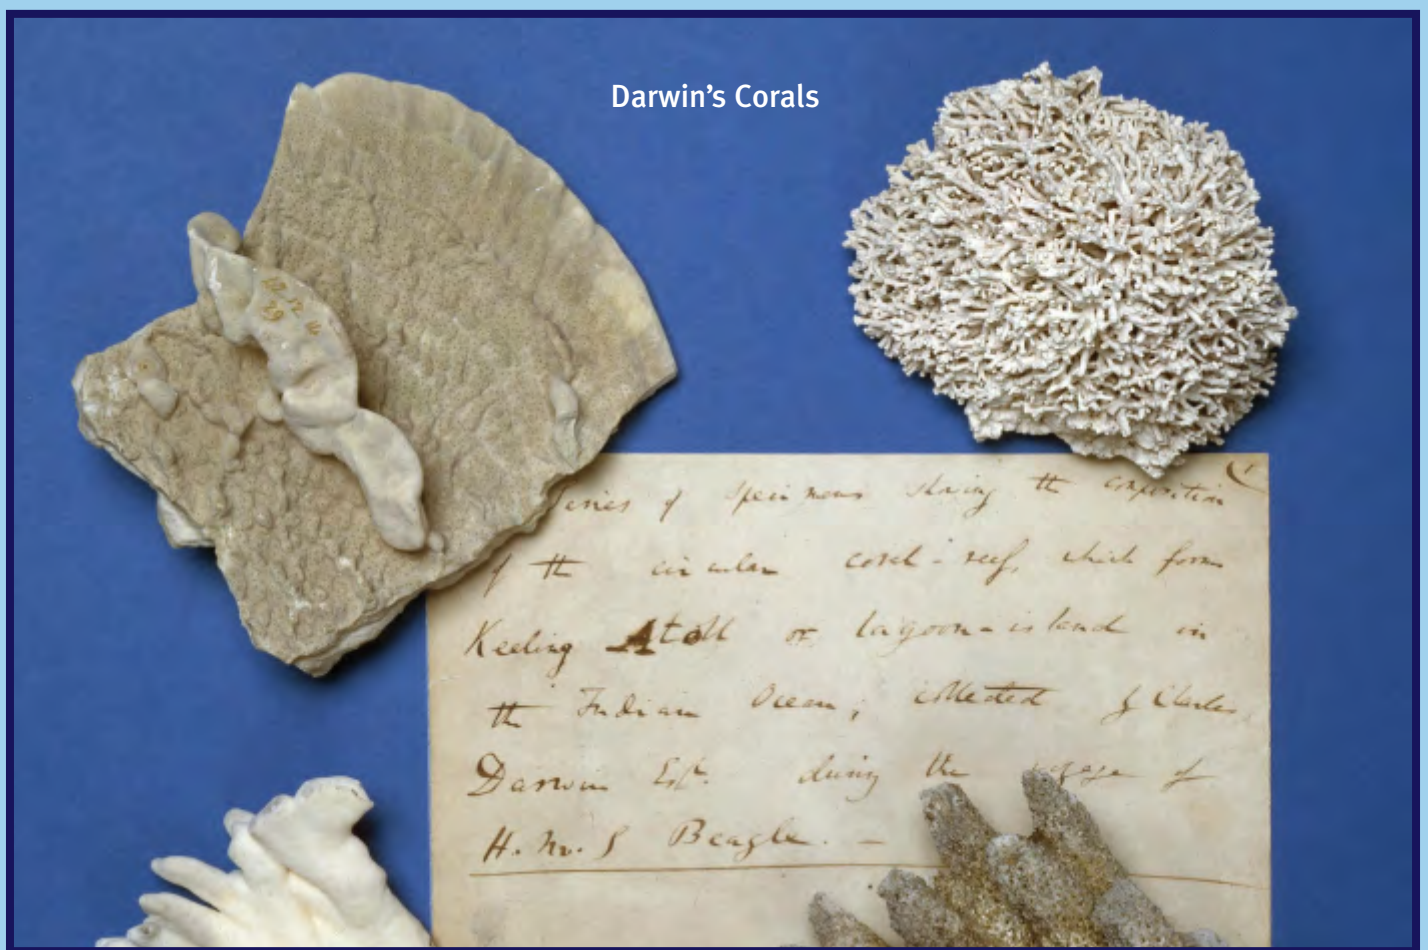 Darwin's Corals
eries of specimens showing the composition
of the circular coral-reef, which forms
Keeling Atoll or lagoon-island in
the Indian Ocean; collected by Charles
Darwin Esqr. during the voyage of
H.M.S Beagle. —